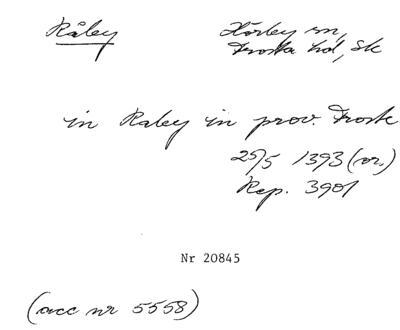 Råbey Hörby sn,
Frosta hd, Sk
in Rabey in prov. Frosta
25/5 1393 (or.)
Rep. 3901
Nr 20845
(acc nr 5558)